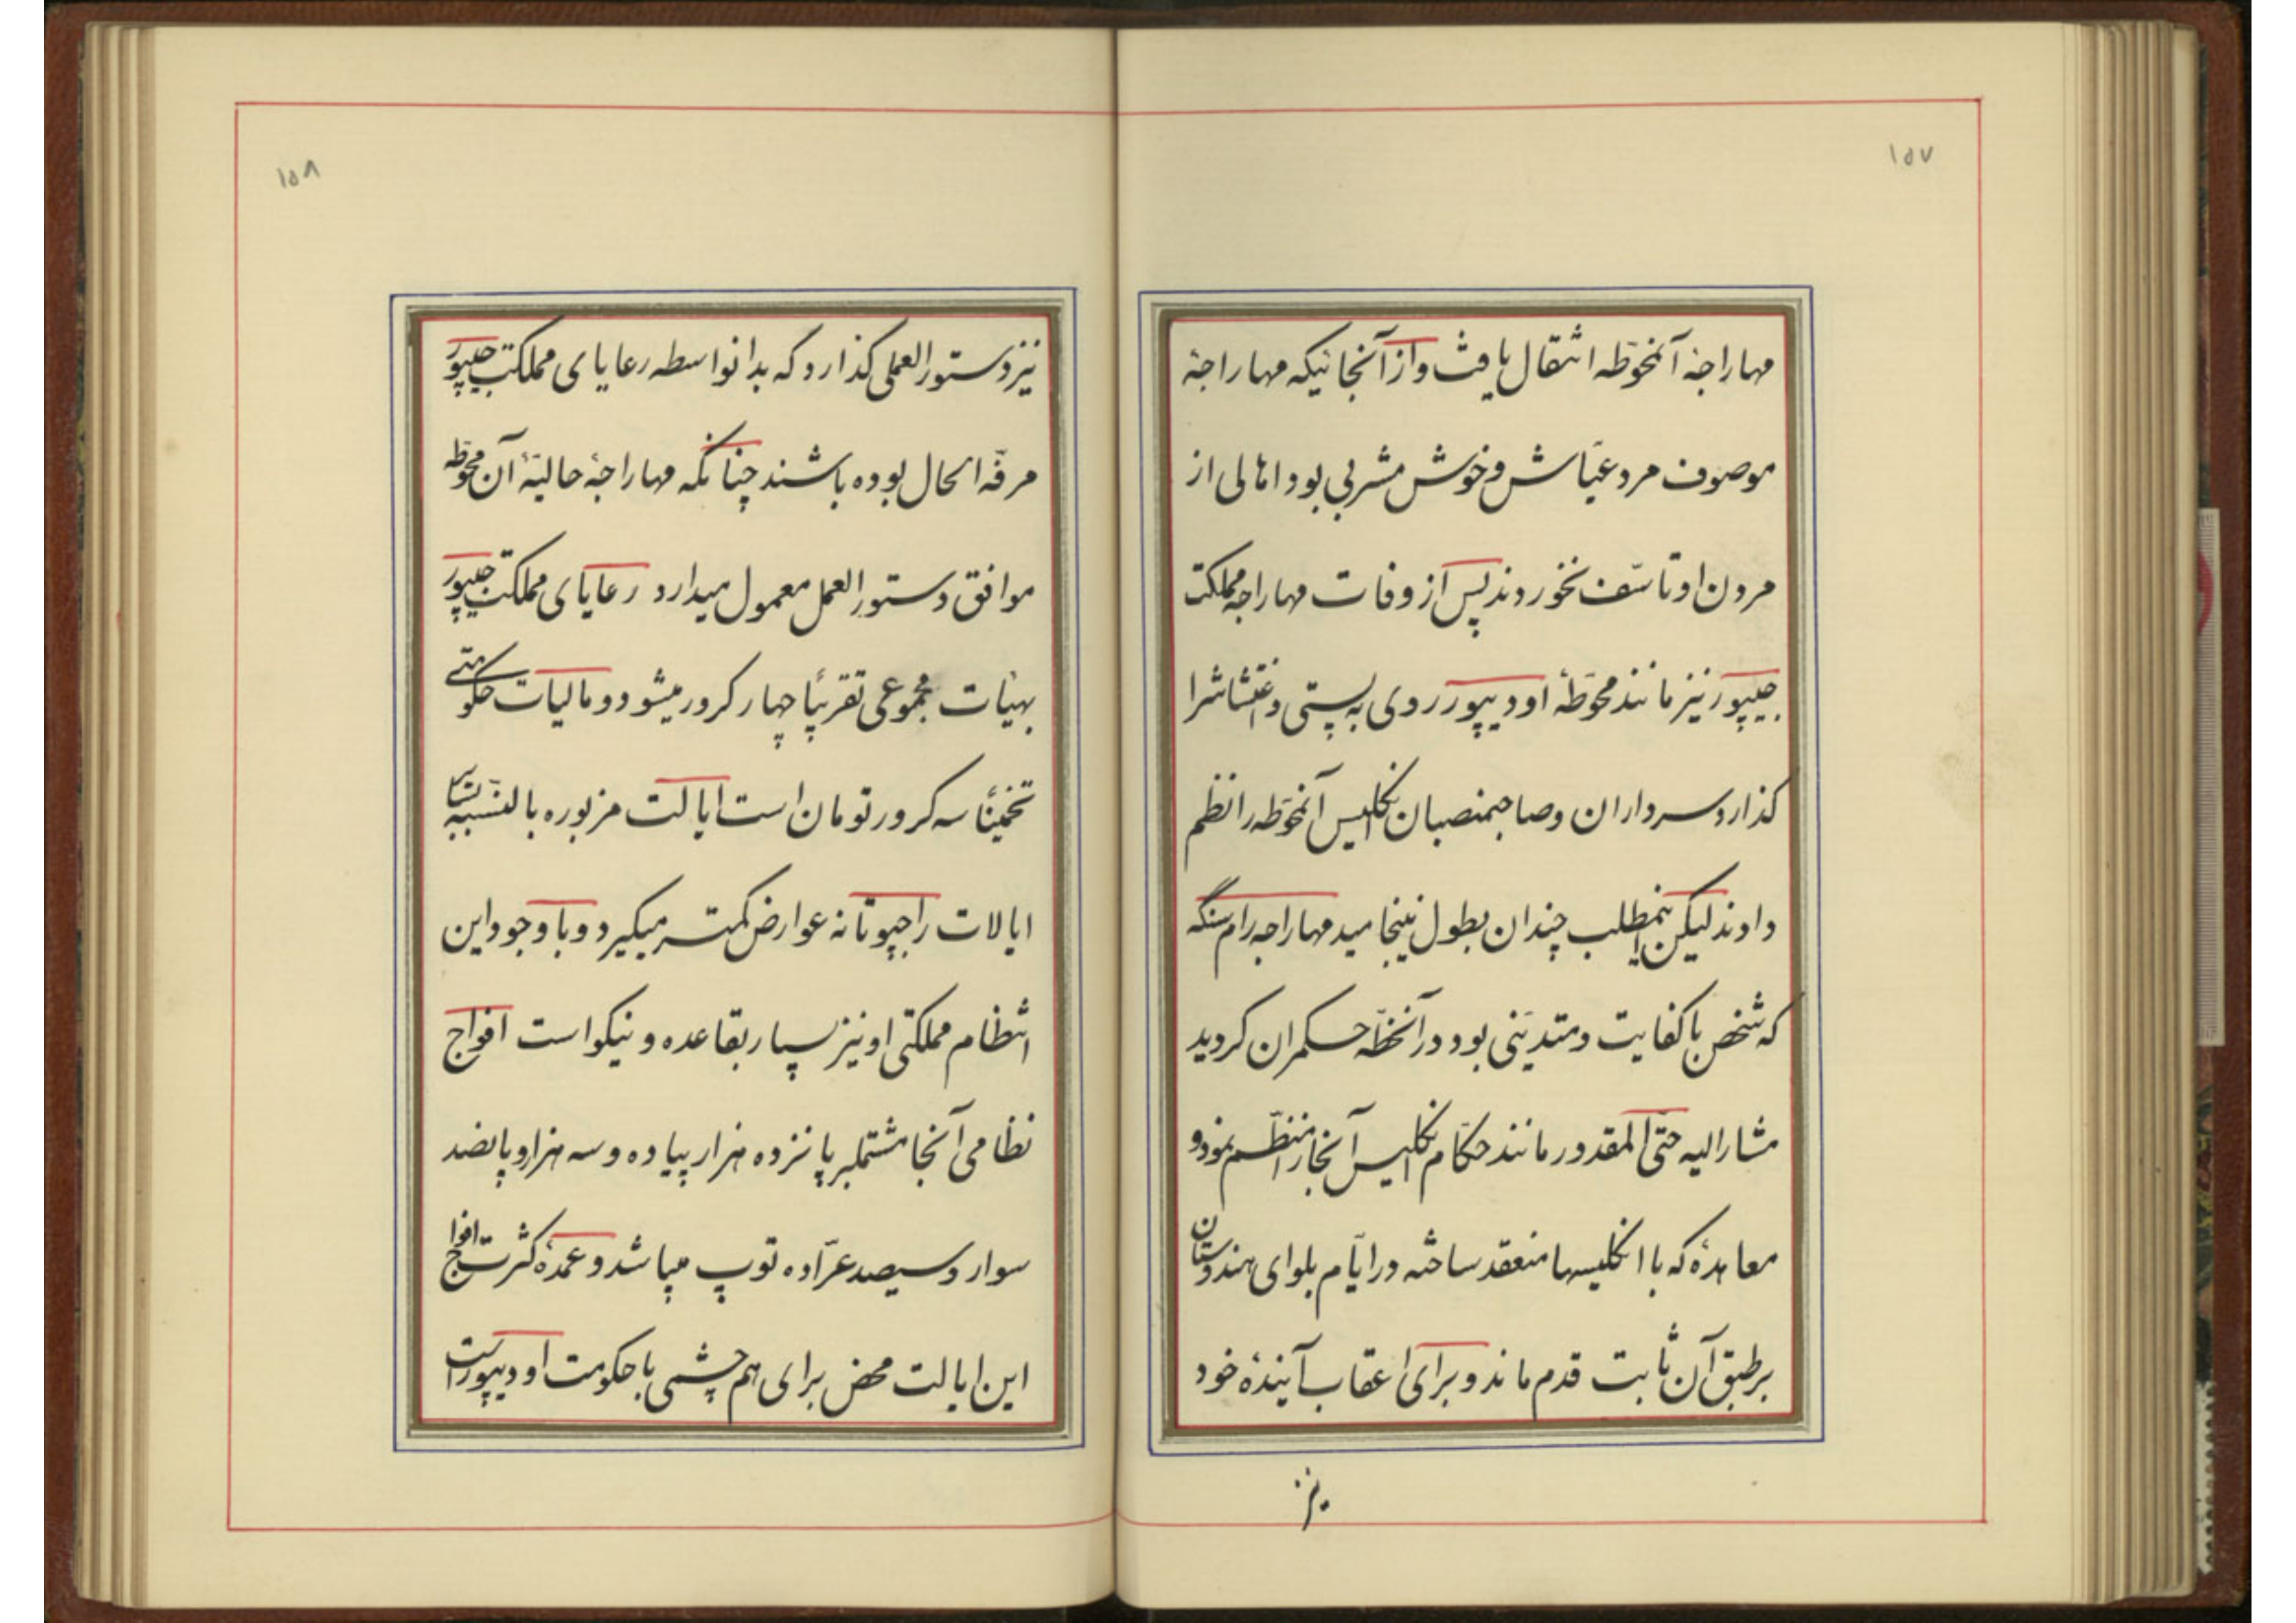 ۱۵۷
مهاراجهٔ آنمحوّطه انتقال یافت و از آنجائیکه مهاراجهٔ
موصوف مرد عیّاش و خوش مشربی بود اهالی از
مردن او تاسّف نخوردند پس از وفات مهاراجه مملکت
جیپور نیز مانند محوّطهٔ اودیپور روی به پستی و اغتشاش را
گذارد سرداران و صاحبمنصبان انگلیس آنمحوّطه را نظم
دادند لیکن اینمطلب چندان بطول نینجامید مهاراجه رام سنگه
که شخص با کفایت و متدیّنی بود در آنخطّه حکمران گردید
مشارالیه حتّی المقدور مانند حکّام انگلیس آنجا را منظّم نمود و
معاهدهٔ که با انگلیسها منعقد ساخته در ایّام بلوای هندوستان
بر طبق آن ثابت قدم ماند و برای اعقاب آیندهٔ خود
نیز
۱۵۸
نیز دستورالعملی گذارد که بدانواسطه رعایای مملکت جیپور
مرفّه الحال بوده باشند چنانکه مهاراجهٔ حالیّهٔ آن محوّطه
موافق دستورالعمل معمول میدارد رعایای مملکت جیپور
بهیئات مجموعی تقریبًا چهار کرور میشود و مالیات حکومتی
تخمینًا سه کرور تومان است ایالت مزبوره بالنّسبه بسایر
ایالات راجپوتانه عوارض کمتر میگیرد و با وجود این
انتظام مملکتی او نیز بسیار بقاعده و نیکو است افواج
نظامی آنجا مشتمل بر پانزده هزار پیاده و سه هزار و پانصد
سوار و سیصد عرّاده توپ میباشد و عمدهٔ کثرت افواج
این ایالت محض برای هم چشمی با حکومت اودیپور است